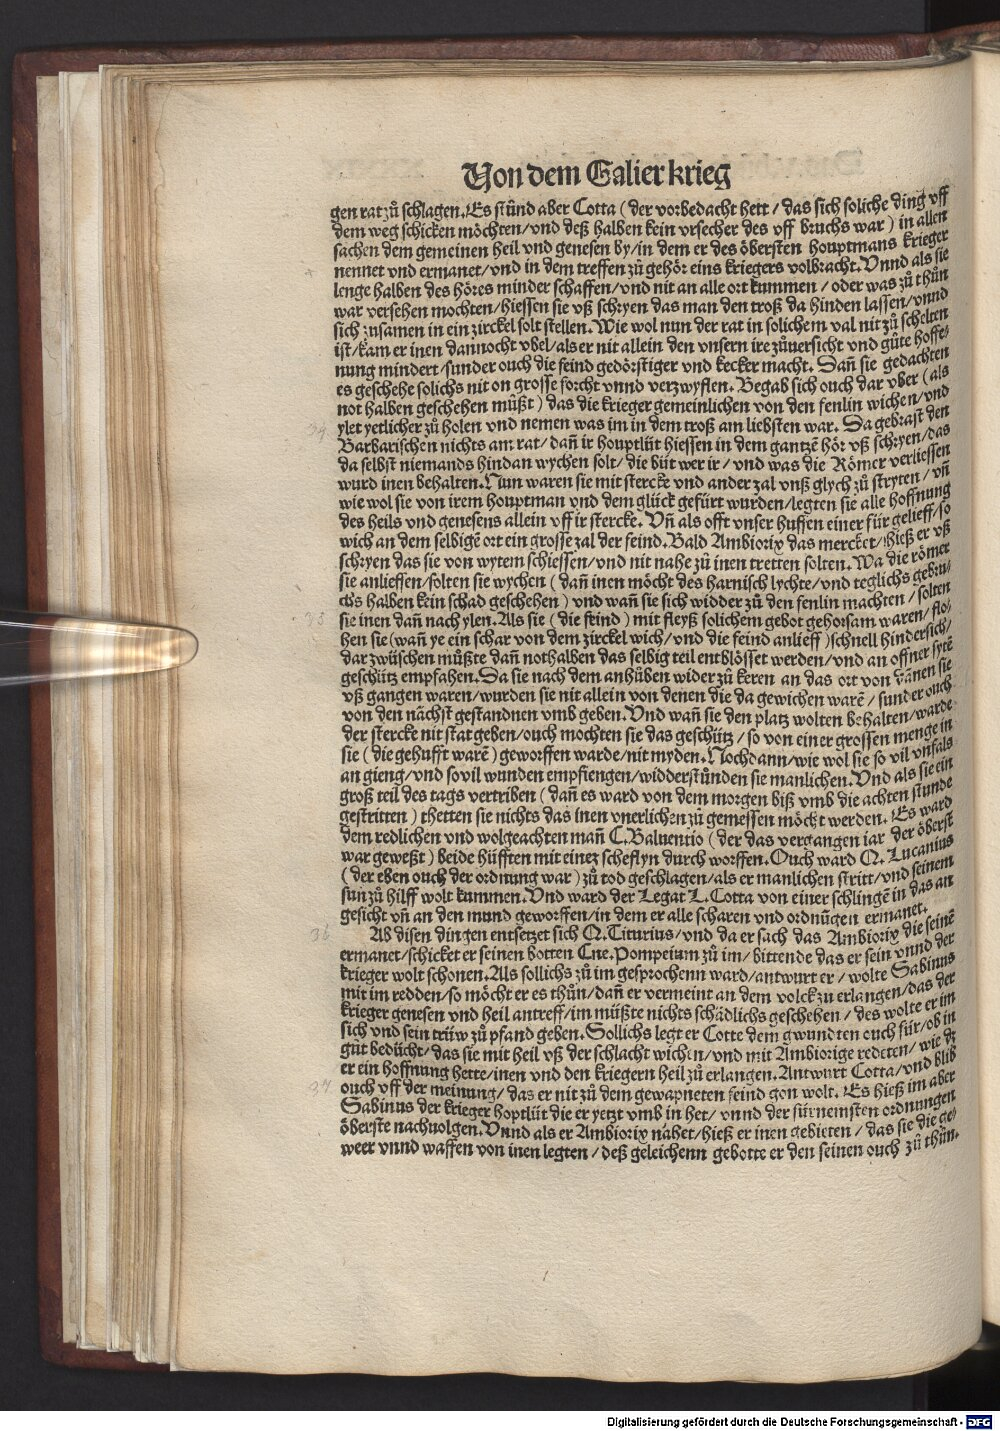 Von dem Galier krieg
gen rat zů schlagen. Es stůnd aber Cotta (der vorbedacht hett / das sich soliche ding vff
dem weg schicken möchten/vnd deß halben kein vrsecher des vff bruchs war) in allen
sachen dem gemeinen heil vnd genesen by/in dem er des öbersten houptmans krieger
nennet vnd ermanet/vnd in dem treffen zů gehör eins kriegers volbracht. Vnnd als sie
lenge halben des höres minder schaffen/vnd nit an alle ort kummen / oder was zů thůn
war versehen mochten/hiessen sie vß schryen das man den troß da hinden lassen/vnnd
sich zusamen in ein zirckel solt stellen. Wie wol nun der rat in solichem val nit zů schelten
ist/kam er inen dannocht vbel/als er nit allein den vnsern ire zůuersicht vnd gůte hoffe⸗
nung mindert/sunder ouch die feind gedörstiger vnd kecker macht. Dañ sie gedachten
es geschehe solichs nit on grosse forcht vnnd verzwyflen. Begab sich ouch dar vber (als
not halben geschehen můßt) das die krieger gemeinlichen von den fenlin wichen/vnd
ylet yetlicher zů holen vnd nemen was im in dem troß am liebsten war. Da gebrast den
34
Barbarischen nichts am rat/dañ ir houptlüt hiessen in dem gantzē hör vß schryen/das
da selbst niemands hindan wychen solt/die büt wer ir/vnd was die Römer verliessen
wurd inen behalten. Nun waren sie mit stercke vnd ander zal vnß glych zů stryten/vñ
wie wol sie von irem houptman vnd dem glück gefürt wurden/legten sie alle hoffnung
des heils vnd genesens allein vff ir stercke. Vñ als offt vnser huffen einer für gelieff/so
wich an dem selbigē ort ein grosse zal der feind. Bald Ambiorix das mercket/hieß er vß
schryen das sie von wytem schiessen/vnd nit nahe zů inen tretten solten. Wa die römer
sie anlieffen/solten sie wychen (dañ inen möcht des harnisch lychte/vnd teglichs gebru⸗
chs halben kein schad geschehen) vnd wañ sie sich widder zů den fenlin machten / solten
35
sie inen dañ nach ylen. Als sie (die feind) mit fleyß solichem gebot gehorsam waren/flo⸗
hen sie (wañ ye ein schar von dem zirckel wich/vnd die feind anlieff) schnell hindersich/
dar zwüschen můßte dañ nothalben das selbig teil entblösset werden/vnd an offner sytē
geschütz empfahen. Da sie nach dem anhůben wider zů keren an das ort von dānen sie
vß gangen waren/wurden sie nit allein von denen die da gewichen warē / sunder ouch
von den nächst gestandnen vmb geben. Vnd wañ sie den platz wolten behalten/warde
der stercke nit stat geben/ouch mochten sie das geschütz / so von einer grossen menge in
sie (die gehufft warē) geworffen warde/nit myden. Nochdann/wie wol sie so vil vnfals
an gieng/vnd sovil wunden empfiengen/widderstůnden sie manlichen. Vnd als sie ein
groß teil des tags vertriben (dañ es ward von dem morgen biß vmb die achten stunde
gestritten) thetten sie nichts das inen vnerlichen zů gemessen möcht werden. Es ward
dem redlichen vnd wolgeachten mañ C. Baluentio (der das vergangen iar der öberst
war geweßt) beide hüfften mit einez scheflyn durch worffen. Ouch ward Q. Lucanius
(der eben ouch der ordnung war) zů tod geschlagen/als er manlichen stritt/vnd seinem
sun zů hilff wolt kummen. Vnd ward der Legat L. Cotta von einer schlingē in das an
gesicht vñ an den mund geworffen/in dem er alle scharen vnd ordnũgen ermanet.
36
Ab disen dingen entsetzet sich Q. Titurius/vnd da er sach das Ambiorix die seinē
ermanet/schicket er seinen botten Cne. Pompeium zů im/bittende das er sein vnnd der
krieger wolt schonen. Als sollichs zů im gesprochenn ward/antwurt er / wolte Sabinus
mit im redden/so möcht er es thůn/dañ er vermeint an dem volck zu erlangen/das der
krieger genesen vnd heil antreff/im müßte nichts schädlichs geschehen / des wolte er im
sich vnd sein trüw zů pfand geben. Sollichs legt er Cotte dem gwundten ouch für/ob in
gůt bedücht/das sie mit heil vß der schlacht wichen/vnd mit Ambiorige redeten/wie dz
er ein hoffnung hette/inen vnd den kriegern heil zů erlangen. Antwurt Cotta/vnd blib
ouch vff der meinung/das er nit zů dem gewapneten feind gon wolt. Es hieß im aber
37
Sabinus der krieger hoptlüt die er yetzt vmb in het/vnnd der fürnemsten ordnungen
öberste nachuolgen. Vnnd als er Ambiorix nähet/hieß er inen gebieten / das sie die ge⸗
weer vnnd waffen von inen legten/deß geleichenn gebotte er den seinen ouch zů thůn.
Digitalisierung gefördert durch die Deutsche Forschungsgemeinschaft - DFG